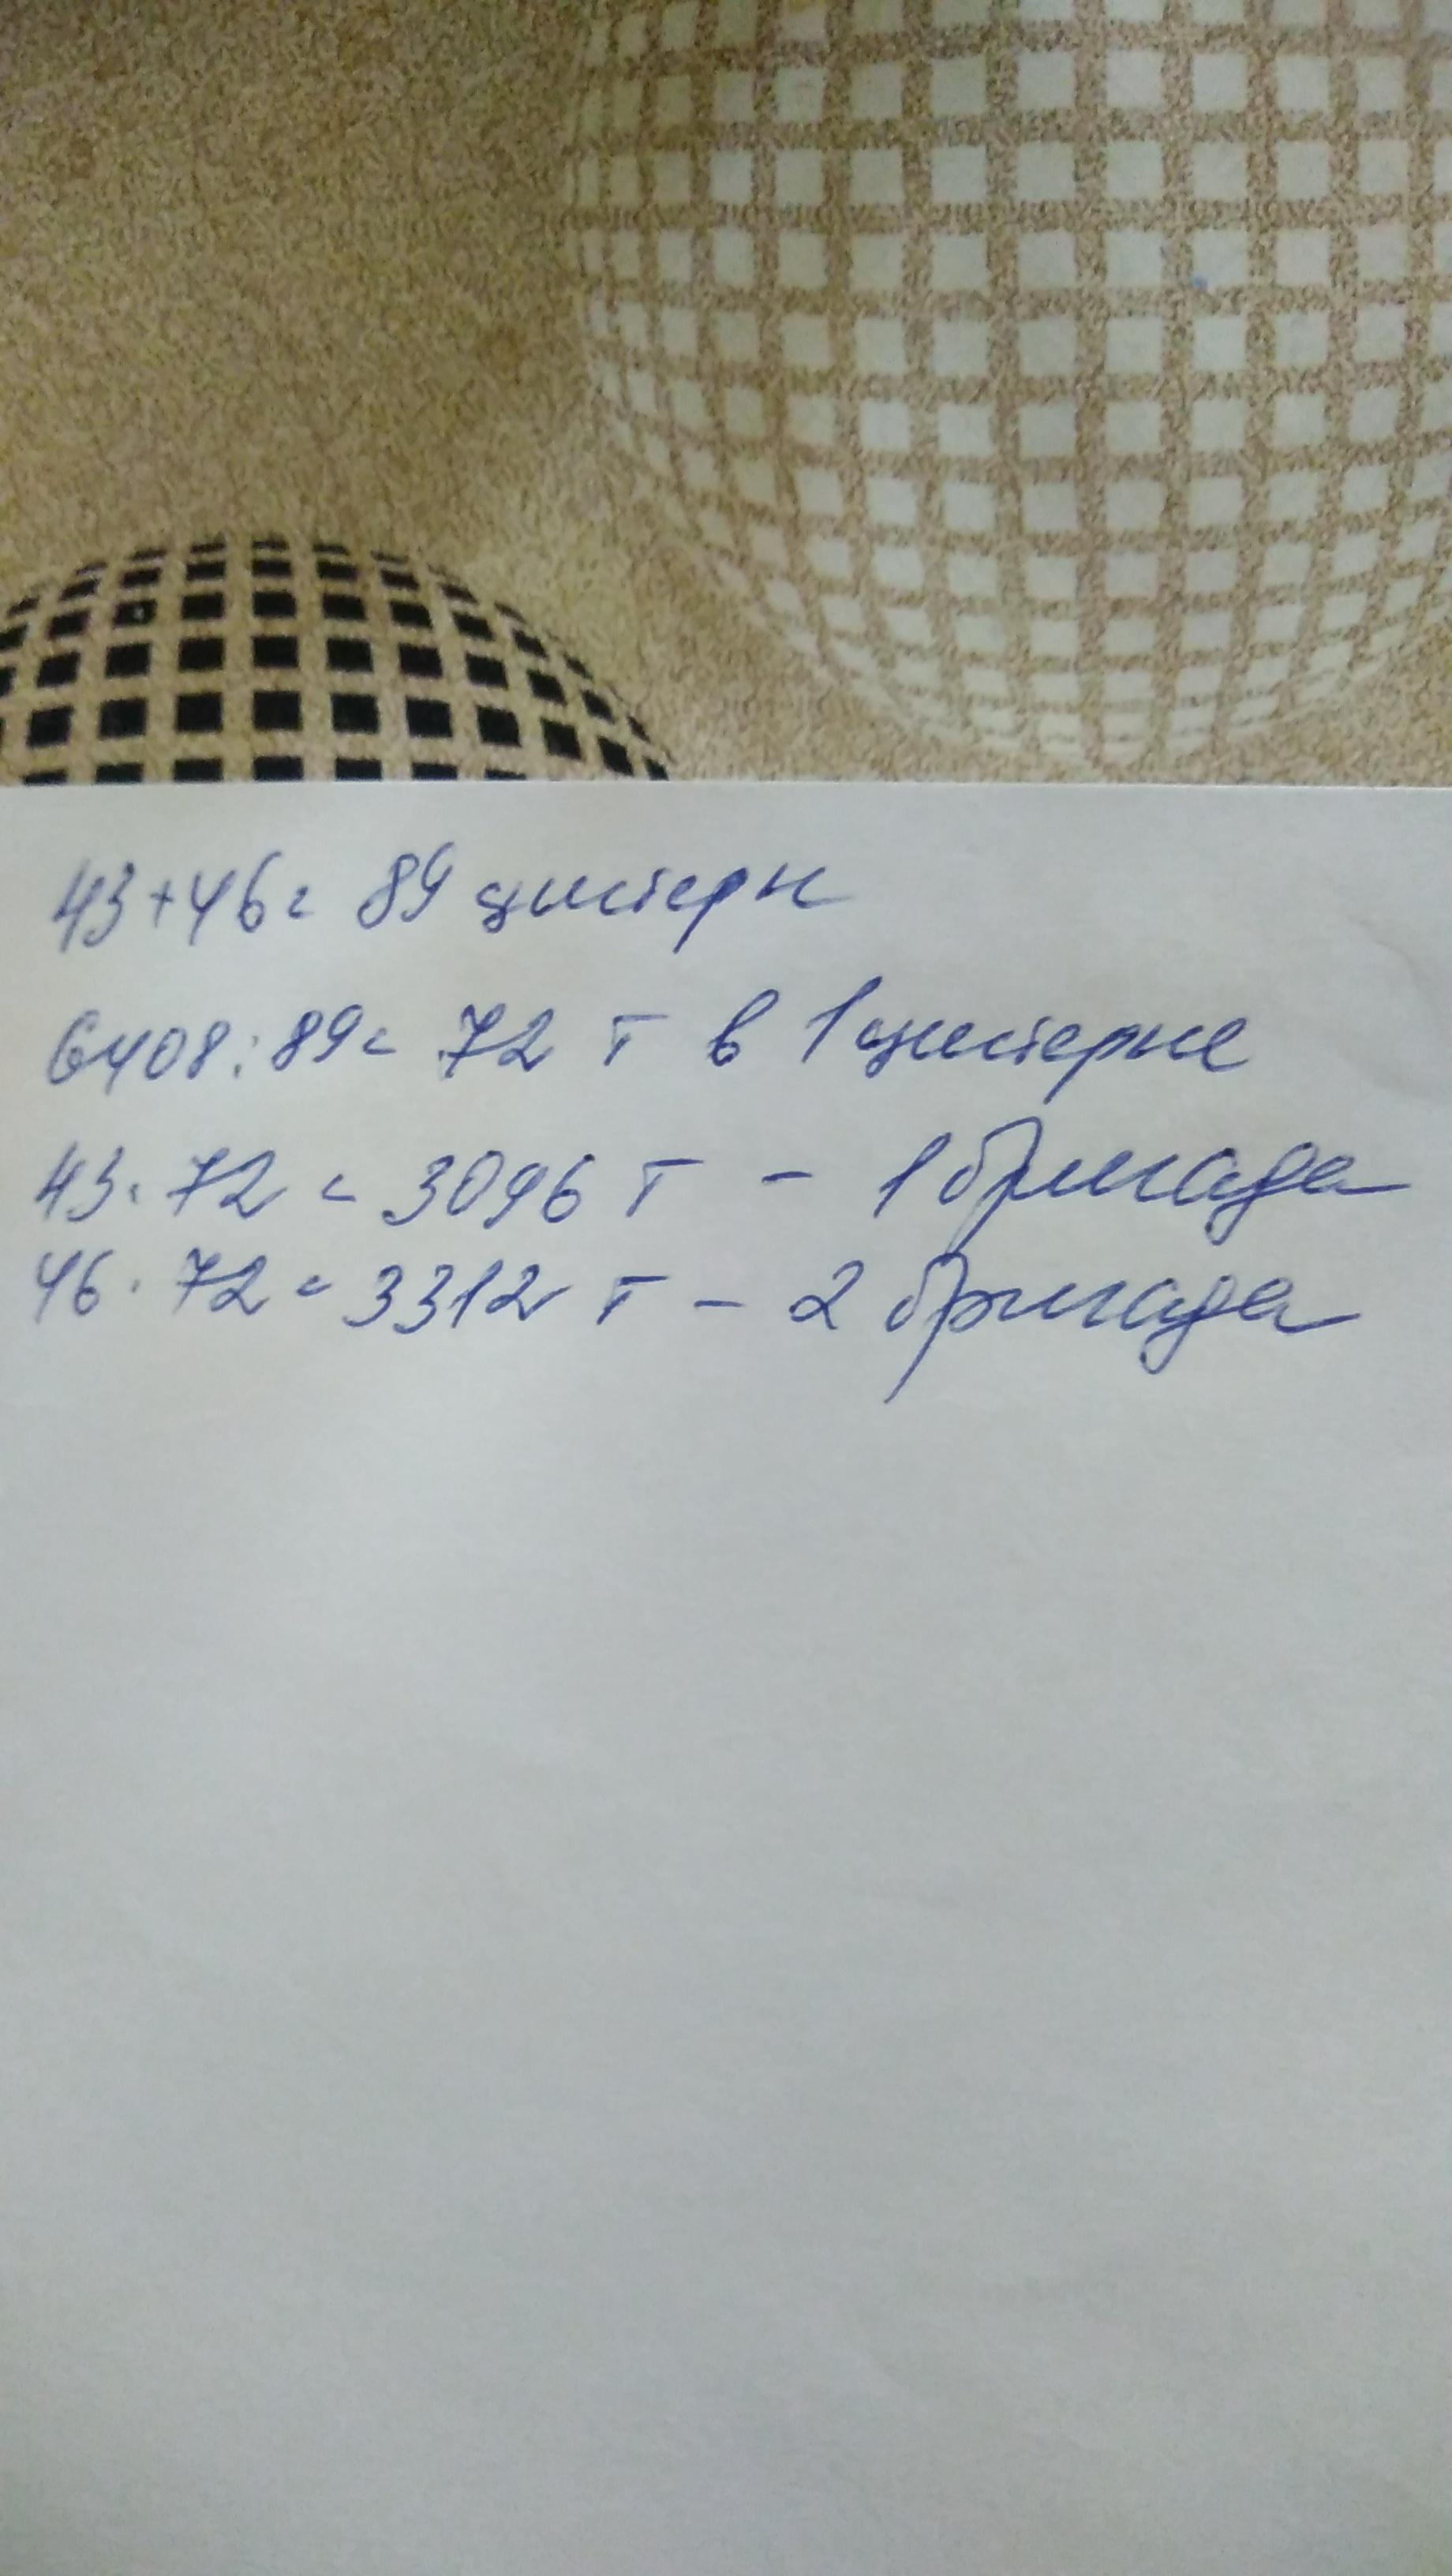 43+46= 89 цистерн
6408:89= 72 т в 1 цистерне
43·72 = 3096 т - 1 бригада
46·72 = 3312 т - 2 бригада